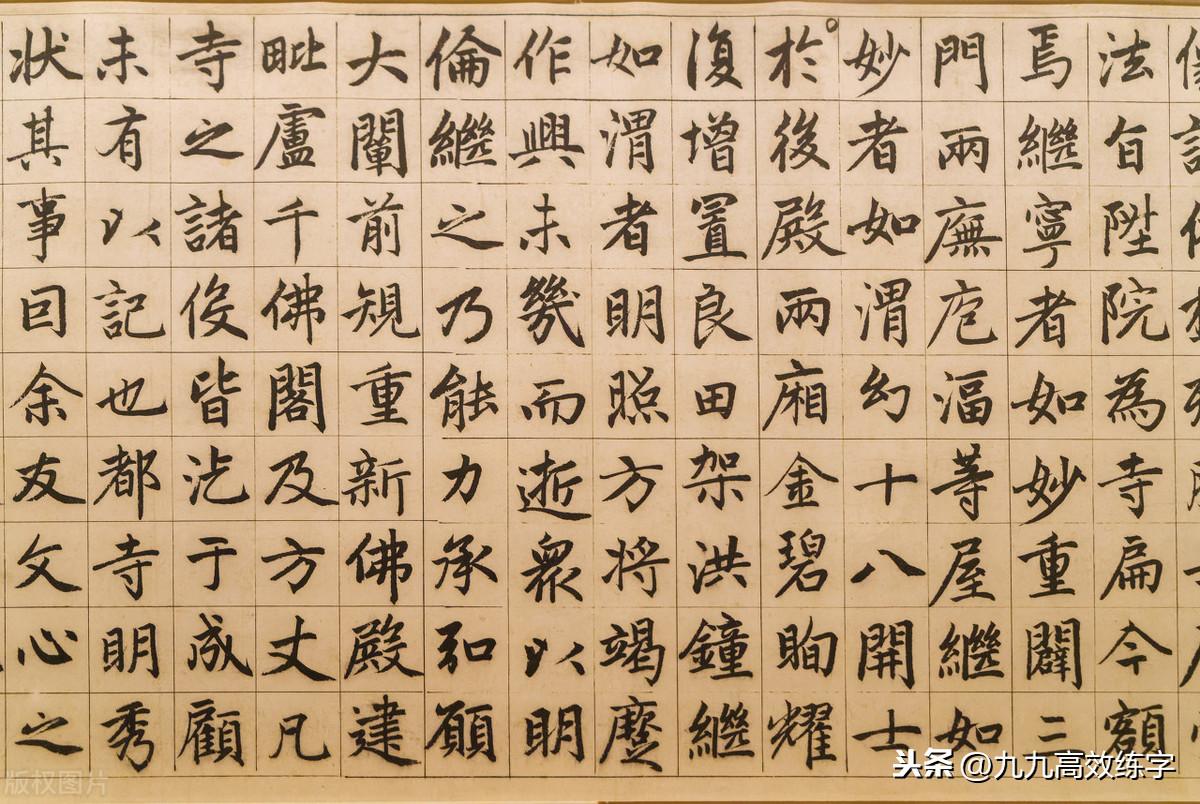 法旨陞院為寺扁今額
焉繼寧者如妙重闢二
門兩廡庖湢等屋繼如
妙者如渭幻十八開士
於後殿兩廂金碧眴耀
復增置良田架洪鐘繼
如渭者明照方將竭
作興未幾而逝衆以明
倫繼之乃能力承弘願
大闡前規重新佛殿建
毗盧千佛閣及方丈凡
寺之諸役皆汔于成顧
未有以記也都寺明秀
狀其事囙余友文心之
头条 @九九高效练字
版权图片